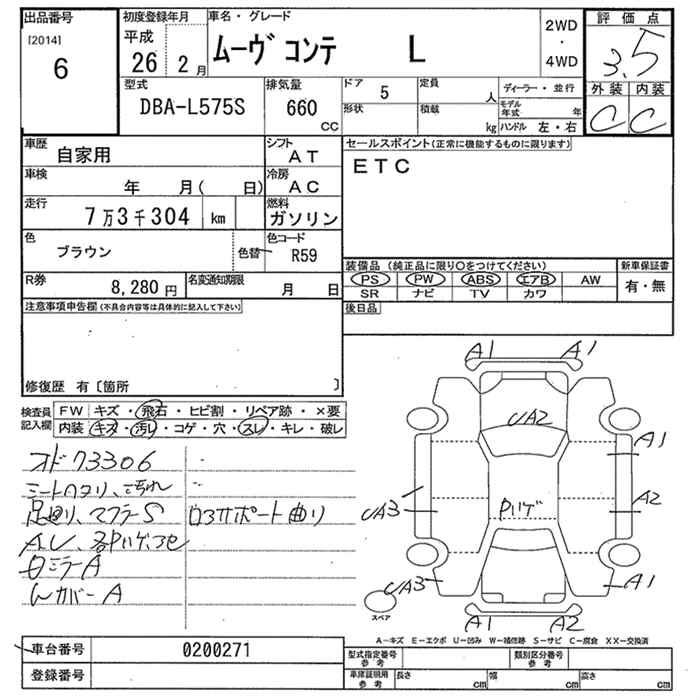 出品番号
[2014]
6
初度登録年月
平成
26 2月
車名・グレード
ムーヴ コンテ L
2WD
・
4WD
評価点
3.5
外装 内装
C C
型式
DBA-L575S
排気量
660
CC
ドア 5
形状
定員 人
積載 kg
ディーラー・並行
モデル年式 年
ハンドル 左・右
車歴
自家用
シフト
AT
車検
年 月( 日)
冷房
AC
走行
7万3千304 km
燃料
ガソリン
色
ブラウン
色替
色コード
R59
R券
8,280円
名変通知期限
月 日
セールスポイント(正常に機能するものに限ります)
ETC
装備品 (純正品に限り○をつけてください)
PS PW ABS エアB AW
SR ナビ TV カワ
新車保証書
有・無
後日品
注意事項申告欄(不具合内容等は具体的に記入して下さい)
修復歴 有〔箇所 〕
検査員記入欄
FW キズ・飛石・ヒビ割・リペア跡・×要
内装 キズ・汚レ・コゲ・穴・スレ・キレ・破レ
オド73306
シートヘタリ、汚れ
足回り、マフラーS
ロアサポート曲り
A1 A1
UA2
A1
UA3
A2
UA3
A1
A1 A2
スペア
A-キズ E-エクボ U-凹み W-補修跡 S-サビ C-腐食 XX-交換済
車台番号
0200271
登録番号
型式指定番号
参考
類別区分番号
参考
車庫証明用
参考
長さ cm
幅 cm
高さ cm